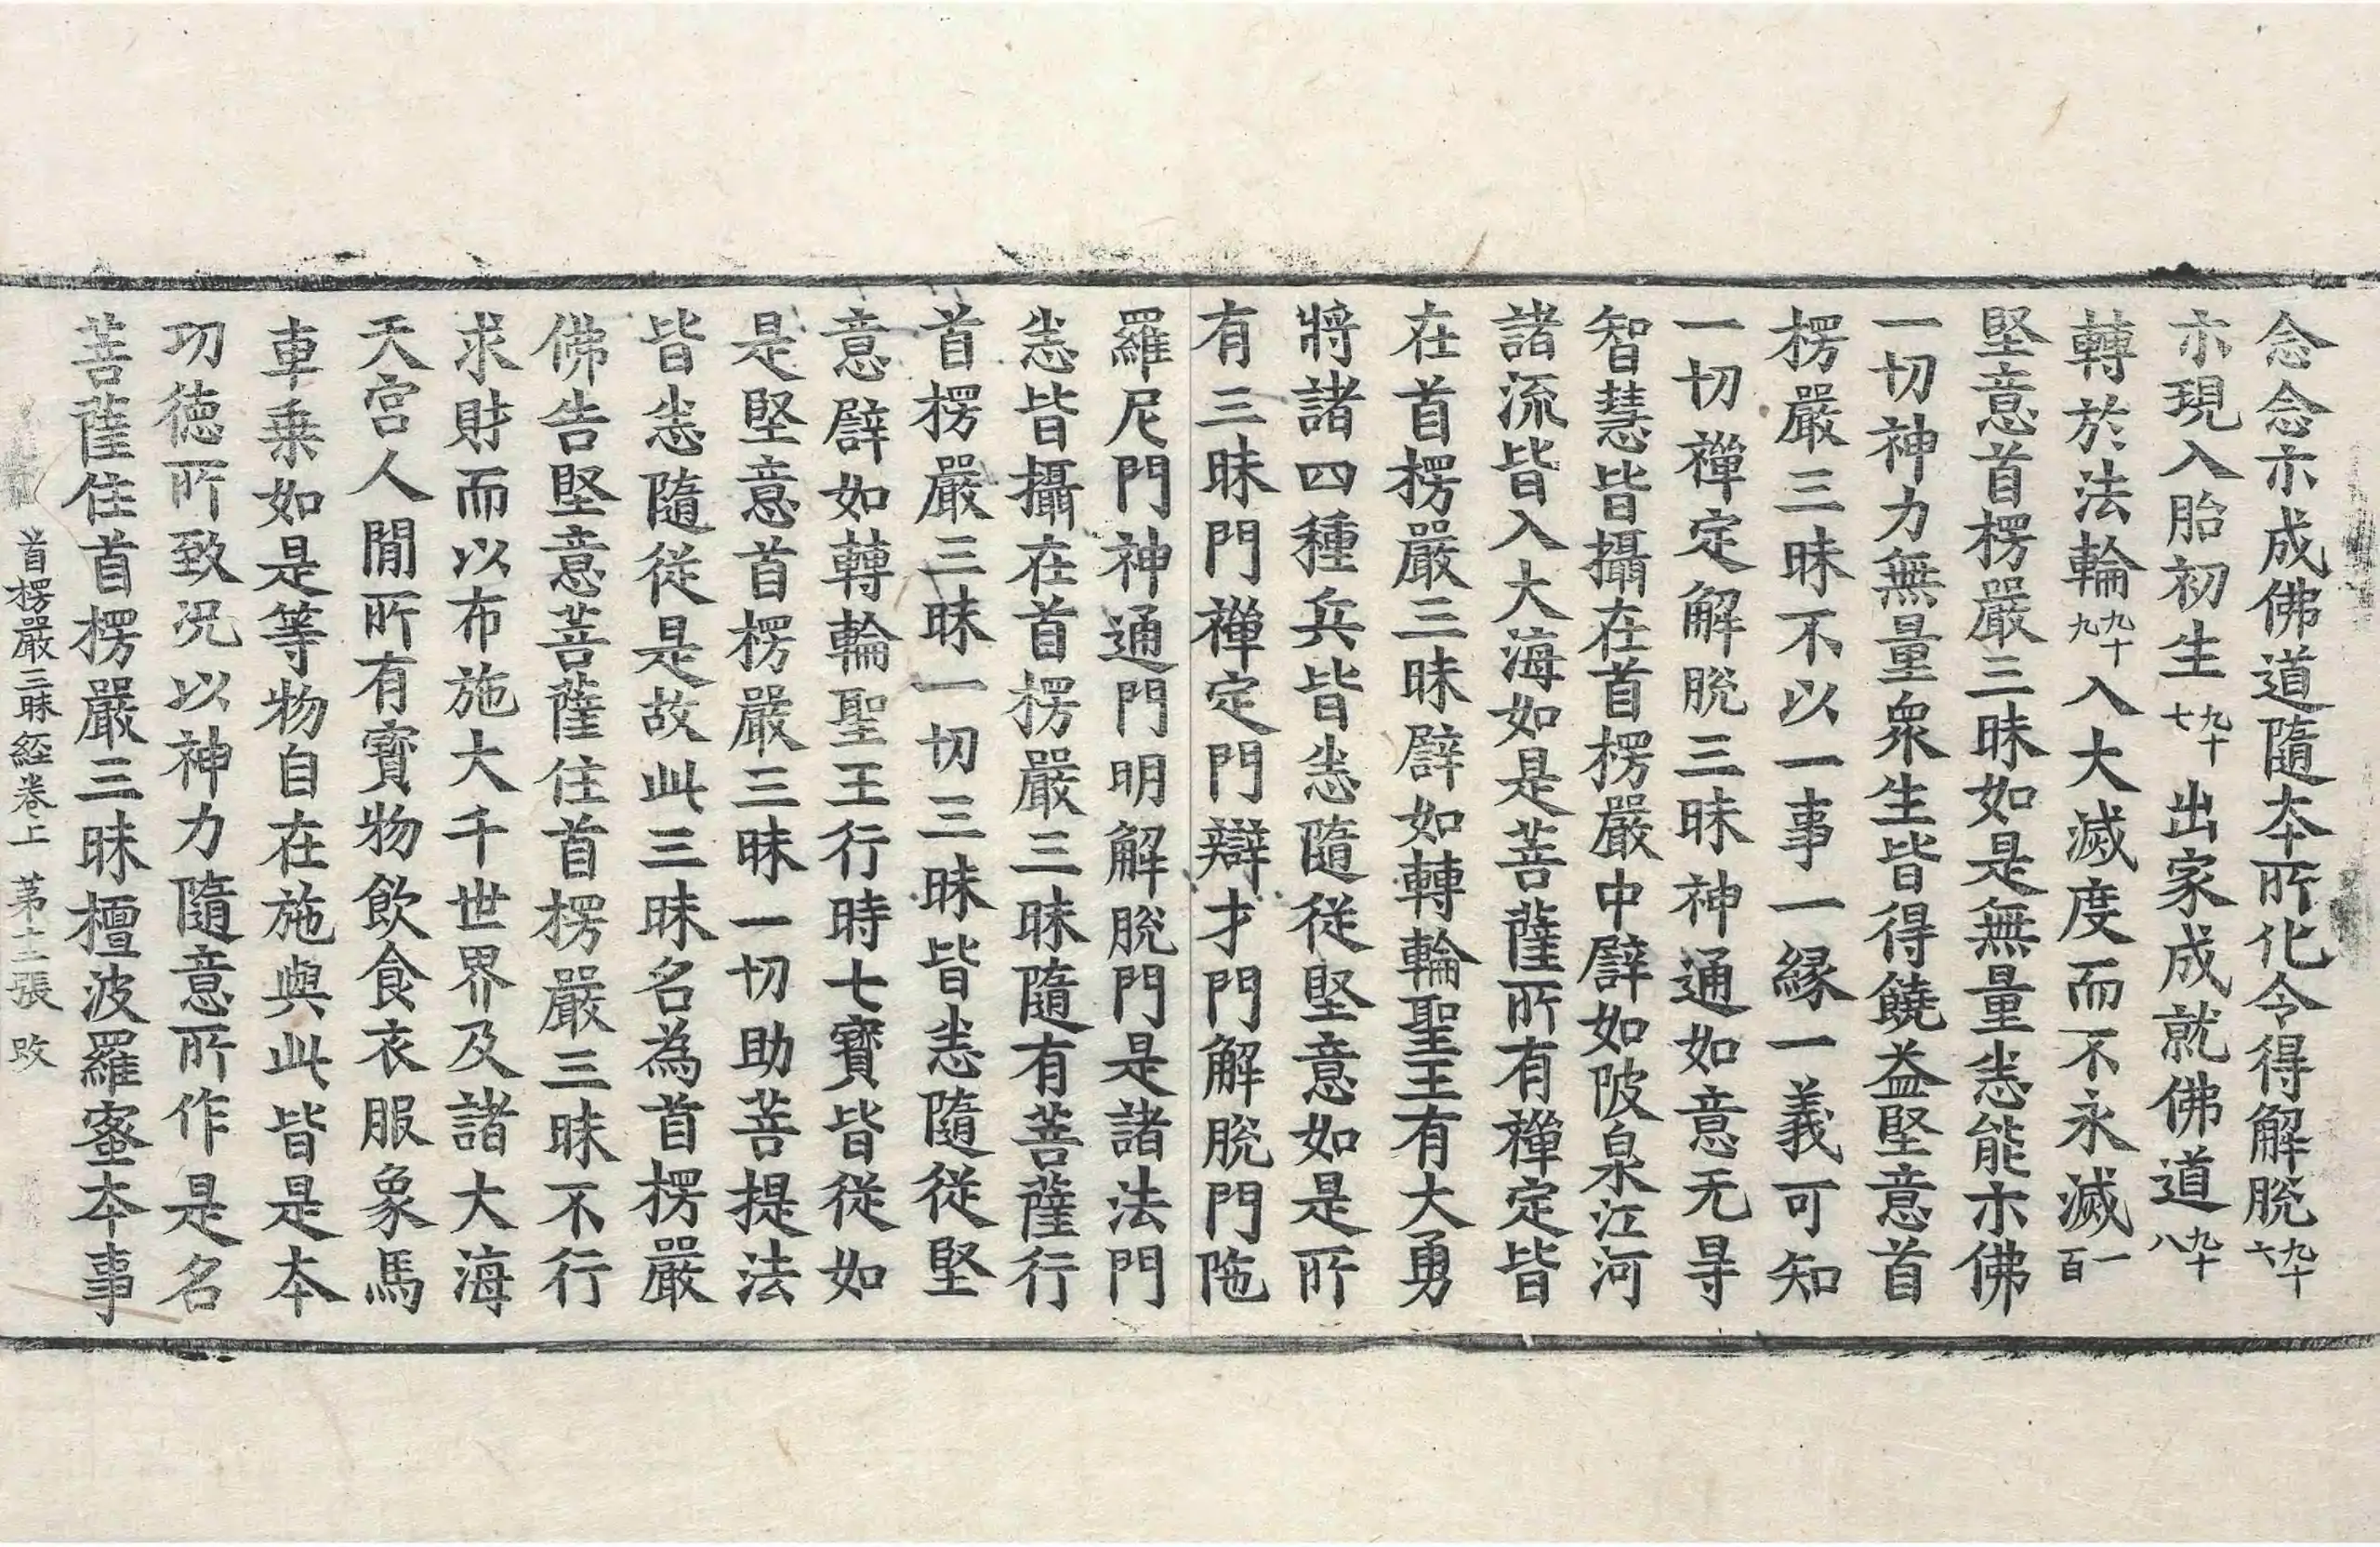 念念亦成佛道隨本所化令得解脫九十六
亦現入胎初生九十七出家成就佛道九十八
轉於法輪九十九入大滅度而不永滅一百
堅意首楞嚴三昧如是無量悉能示佛
一切神力無量衆生皆得饒益堅意首
楞嚴三昧不以一事一緣一義可知
一切禪定解脫三昧神通如意无㝵
智慧皆攝在首楞嚴中譬如陂泉江河
諸流皆入大海如是菩薩所有禪定皆
在首楞嚴三昧譬如轉輪聖王有大勇
將諸四種兵皆悉隨從堅意如是所
有三昧門禪定門辯才門解脫門陁
羅尼門神通門明解脫門是諸法門
悉皆攝在首楞嚴三昧隨有菩薩行
首楞嚴三昧一切三昧皆悉隨從堅
意譬如轉輪聖王行時七寶皆從如
是堅意首楞嚴三昧一切助菩提法
皆悉隨從是故此三昧名為首楞嚴
佛告堅意菩薩住首楞嚴三昧不行
求財而以布施大千世界及諸大海
天宮人閒所有寶物飲食衣服象馬
車乗如是等物自在施與此皆是本
功德所致況以神力隨意所作是名
菩薩住首楞嚴三昧檀波羅蜜本事
首楞嚴三昧経卷上 苐十二張 改